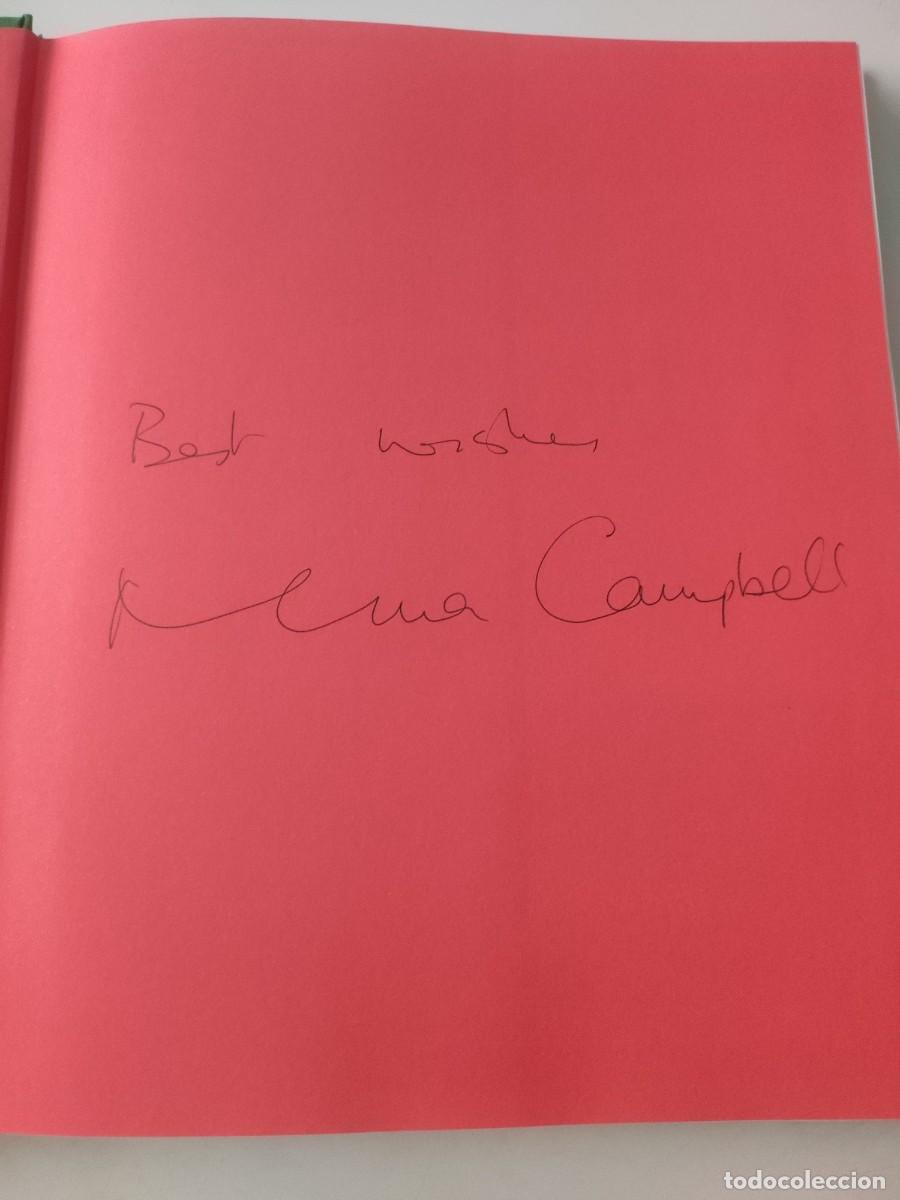 Best wishes
Nina Campbell
todocoleccion